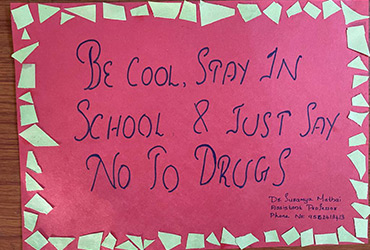 BE COOL, STAY IN
SCHOOL & JUST SAY
NO TO DRUGS
Dr Suramya Mathai
Assistant Professor
Phone No